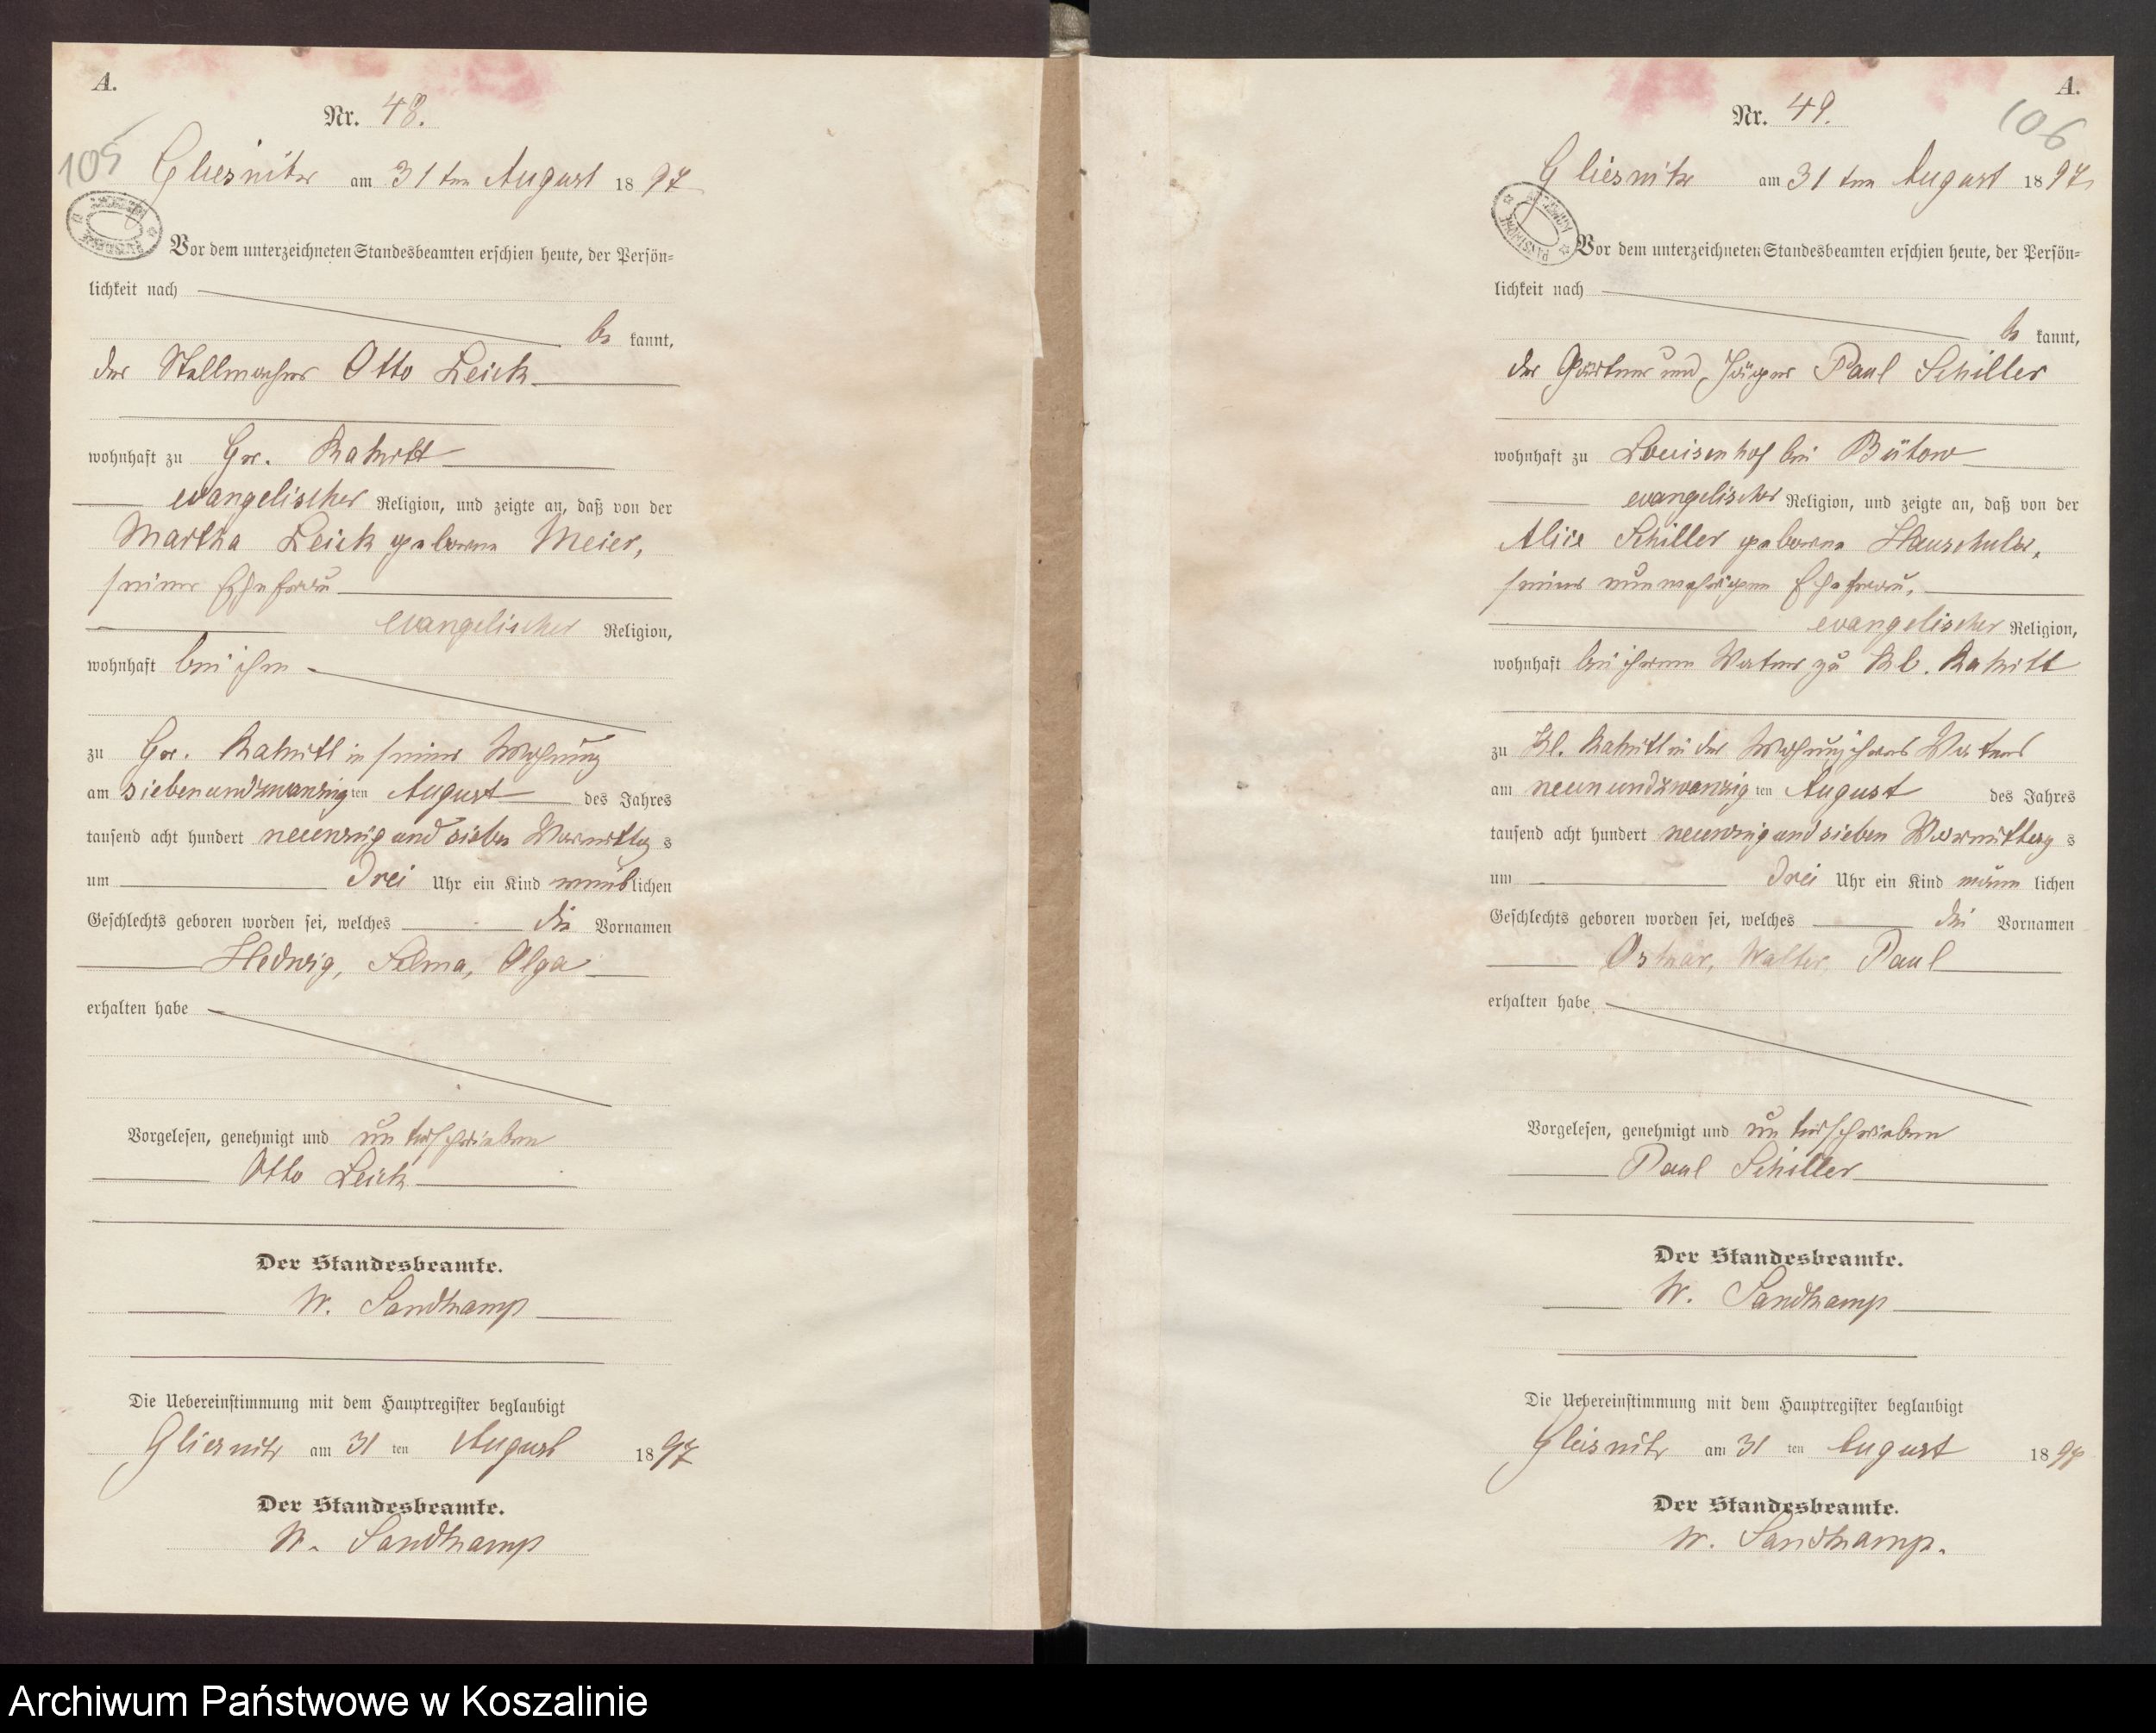 A.
Nr. 48.
105
Gliesnitz am 31 ten August 1897
Vor dem unterzeichneten Standesbeamten erschien heute, der Persön=
lichkeit nach
be kannt,
der Stellmacher Otto Leick
wohnhaft zu Gr. Rakitt
evangelischer Religion, und zeigte an, daß von der
Martha Leick geborene Meier,
seiner Ehefrau
evangelischer Religion,
wohnhaft bei ihm
zu Gr. Rakitt in seiner Wohnung
am siebenundzwanzig ten August des Jahres
tausend acht hundert neunzig und sieben Vormittag s
um drei Uhr ein Kind weiblichen
Geschlechts geboren worden sei, welches die Vornamen
Hedwig, Selma, Olga
erhalten habe
Vorgelesen, genehmigt und unterschrieben
Otto Leick
Der Standesbeamte.
W. Sandkamp
Die Uebereinstimmung mit dem Hauptregister beglaubigt
Gliesnitz am 31 ten August 1897
Der Standesbeamte.
W. Sandkamp
A.
Nr. 49.
106
Gliesnitz am 31 ten August 1897
Vor dem unterzeichneten Standesbeamten erschien heute, der Persön=
lichkeit nach
be kannt,
der Gärtner und Jäger Paul Schiller
wohnhaft zu Louisenhof bei Bütow
evangelischer Religion, und zeigte an, daß von der
Alice Schiller geborene
seiner nunmehrigen Ehefrau,
evangelischer Religion,
wohnhaft bei ihrem Vater zu Kl. Rakitt
zu Kl. Rakitt in der Wohnung ihres Vaters
am neunundzwanzig ten August des Jahres
tausend acht hundert neunzig und sieben Vormittag s
um drei Uhr ein Kind männ lichen
Geschlechts geboren worden sei, welches die Vornamen
Oskar, Walter, Paul
erhalten habe
Vorgelesen, genehmigt und unterschrieben
Paul Schiller
Der Standesbeamte.
W. Sandkamp
Die Uebereinstimmung mit dem Hauptregister beglaubigt
Gliesnitz am 31 ten August 1897
Der Standesbeamte.
W. Sandkamp.
Archiwum Państwowe w Koszalinie